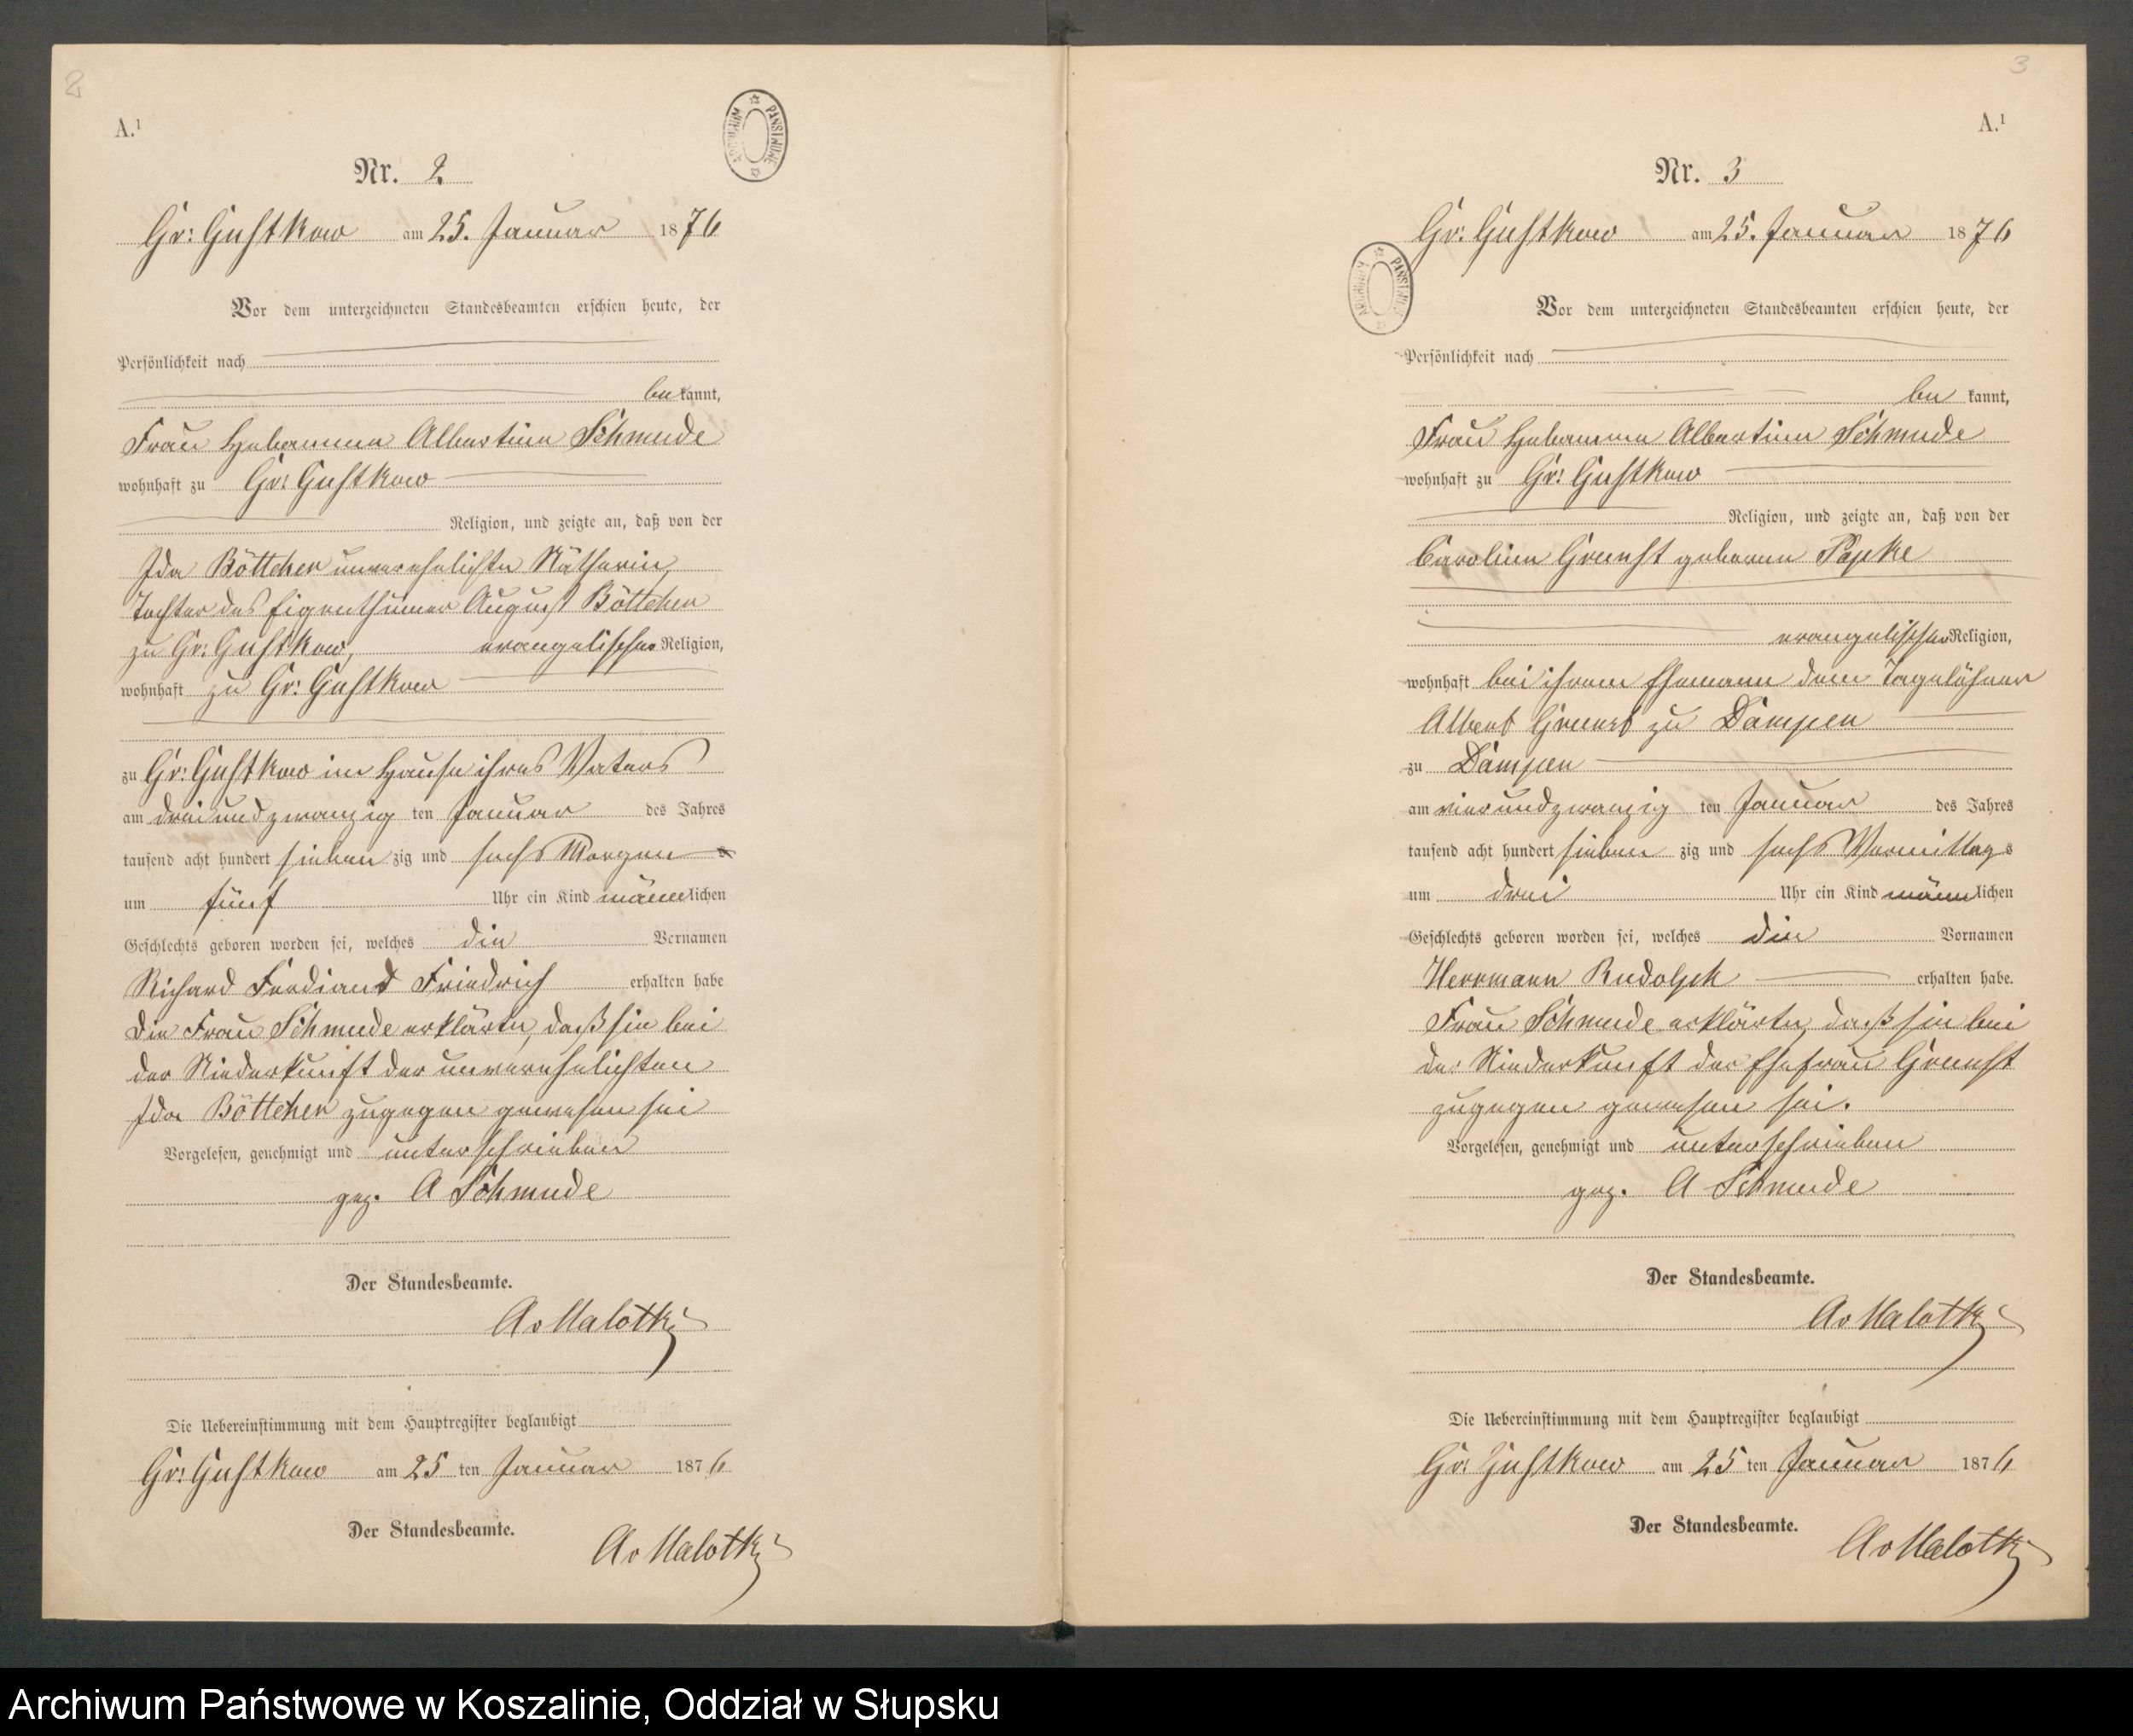 2
A.¹
ARCHIWUM PAŃSTWOWE
Nr. 2
Gr: Gustkow am 25. Januar 1876
Vor dem unterzeichneten Standesbeamten erschien heute, der
Persönlichkeit nach
be kannt,
Frau Hebamme Albertine Schmude
wohnhaft zu Gr: Gustkow
Religion, und zeigte an, daß von der
Ida Böttcher unverehelichte Nätherin,
Tochter des Eigenthümer August Böttcher
zu Gr: Gustkow, evangelischer Religion,
wohnhaft zu Gr: Gustkow
zu Gr: Gustkow im Hause ihres Vaters
am dreiundzwanzig ten Januar des Jahres
tausend acht hundert sieben zig und sechs Morgen s
um fünf Uhr ein Kind männlichen
Geschlechts geboren worden sei, welches die Vornamen
Richard Ferdiand Friedrich erhalten habe
Die Frau Schmude erklärte, daß sie bei
der Niederkunft der unverehelichten
Ida Böttcher zugegen gewesen sei
Vorgelesen, genehmigt und unterschrieben
gez. A Schmude
Der Standesbeamte.
Av Malotki
Die Uebereinstimmung mit dem Hauptregister beglaubigt
Gr: Gustkow am 25 ten Januar 1876
Der Standesbeamte.
Av Malotki
3
A.¹
Nr. 3
Gr: Gustkow am 25. Januar 1876
ARCHIWUM PAŃSTWOWE
Vor dem unterzeichneten Standesbeamten erschien heute, der
Persönlichkeit nach
be kannt,
Frau Hebamme Albertine Schmude
wohnhaft zu Gr: Gustkow
Religion, und zeigte an, daß von der
Caroline Grunst geborene Papke
evangelischer Religion,
wohnhaft bei ihrem Ehemann dem Tagelöhner
Albert Grunst zu Dampen
zu Dampen
am vierundzwanzig ten Januar des Jahres
tausend acht hundert sieben zig und sechs Vormittag s
um drei Uhr ein Kind männlichen
Geschlechts geboren worden sei, welches die Vornamen
Herrmann Rudolph erhalten habe.
Frau Schmude erklärte, daß sie bei
der Niederkunft der Ehefrau Grunst
zugegen gewesen sei.
Vorgelesen, genehmigt und unterschrieben
gez. A Schmude
Der Standesbeamte.
Av Malotki
Die Uebereinstimmung mit dem Hauptregister beglaubigt
Gr: Gustkow am 25 ten Januar 1876
Der Standesbeamte.
Av Malotki
Archiwum Państwowe w Koszalinie, Oddział w Słupsku